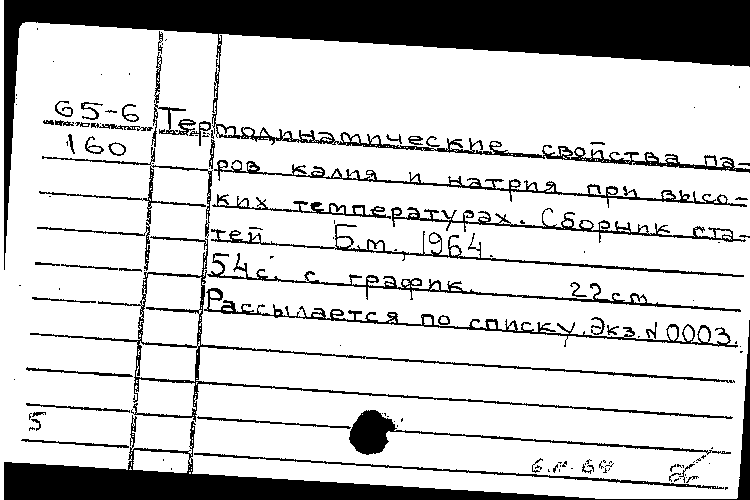 65-6 Термодинамические свойства па-
160 ров калия и натрия при высо-
ких температурах. Сборник ста-
тей. Б.м., 1964.
54 с. с график. 22 см.
Рассылается по списку. Экз. N 0003.
5